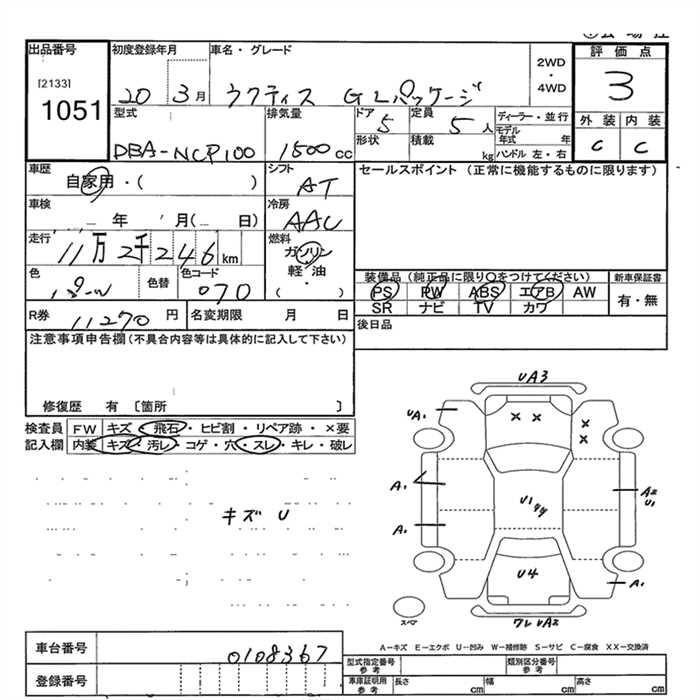 出品番号
[2133]
1051
初度登録年月
20 3月
車名・グレード
ラクティス GLパッケージ
2WD
・
4WD
評価点
3
外装 内装
C C
型式
DBA-NCP100
排気量
1500cc
ドア
5
形状
定員
5人
積載
kg
ディーラー・並行
モデル年式 年
ハンドル 左・右
車歴
自家用・( )
シフト
AT
セールスポイント (正常に機能するものに限ります)
車検
年 月( 日)
冷房
AAC
走行
11万2千246km
燃料
ガソリン
軽・油
・
( )
色
パール
色替
色コード
070
装備品(純正品に限り○をつけてください)
PS PW ABS エアB AW
SR ナビ TV カワ
新車保証書
有・無
R券
11270円
名変期限 月 日
後日品
注意事項申告欄(不具合内容等は具体的に記入して下さい)
修復歴 有 〔箇所 〕
検査員記入欄
FW キズ・飛石・ヒビ割・リペア跡・×要
内装 キズ・汚レ・コゲ・穴・スレ・キレ・破レ
キズ U
UA3
UA1
A1
A1
A2
U1
U1
U4
A1
スペア
ワレUA2
A-キズ E-エクボ U-凹み W-補修跡 S-サビ C-腐食 XX-交換済
車台番号
0108367
登録番号
型式指定番号
参考
類別区分番号
参考
車庫証明用
参考
長さ cm
幅 cm
高さ cm